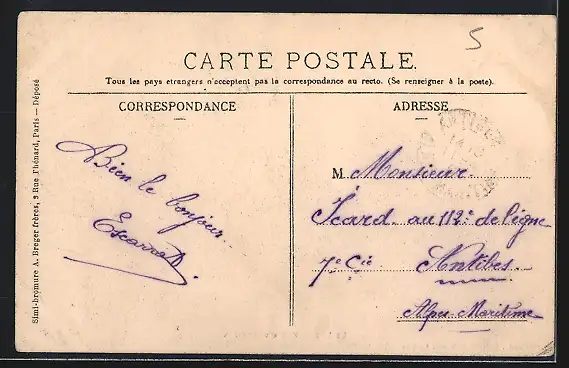 5
CARTE POSTALE.
Tous les pays etrangers n'acceptent pas la correspondance au recto. (Se renseigner à la poste).
CORRESPONDANCE
Bien le bonjour.
Escarrat
ADRESSE
M Monsieur
Icard au 112e de ligne
7e Cie Antibes
Alpes Maritime
Simi-bromure A. Breger frères, 9 Rue Thénard, Paris — Déposé